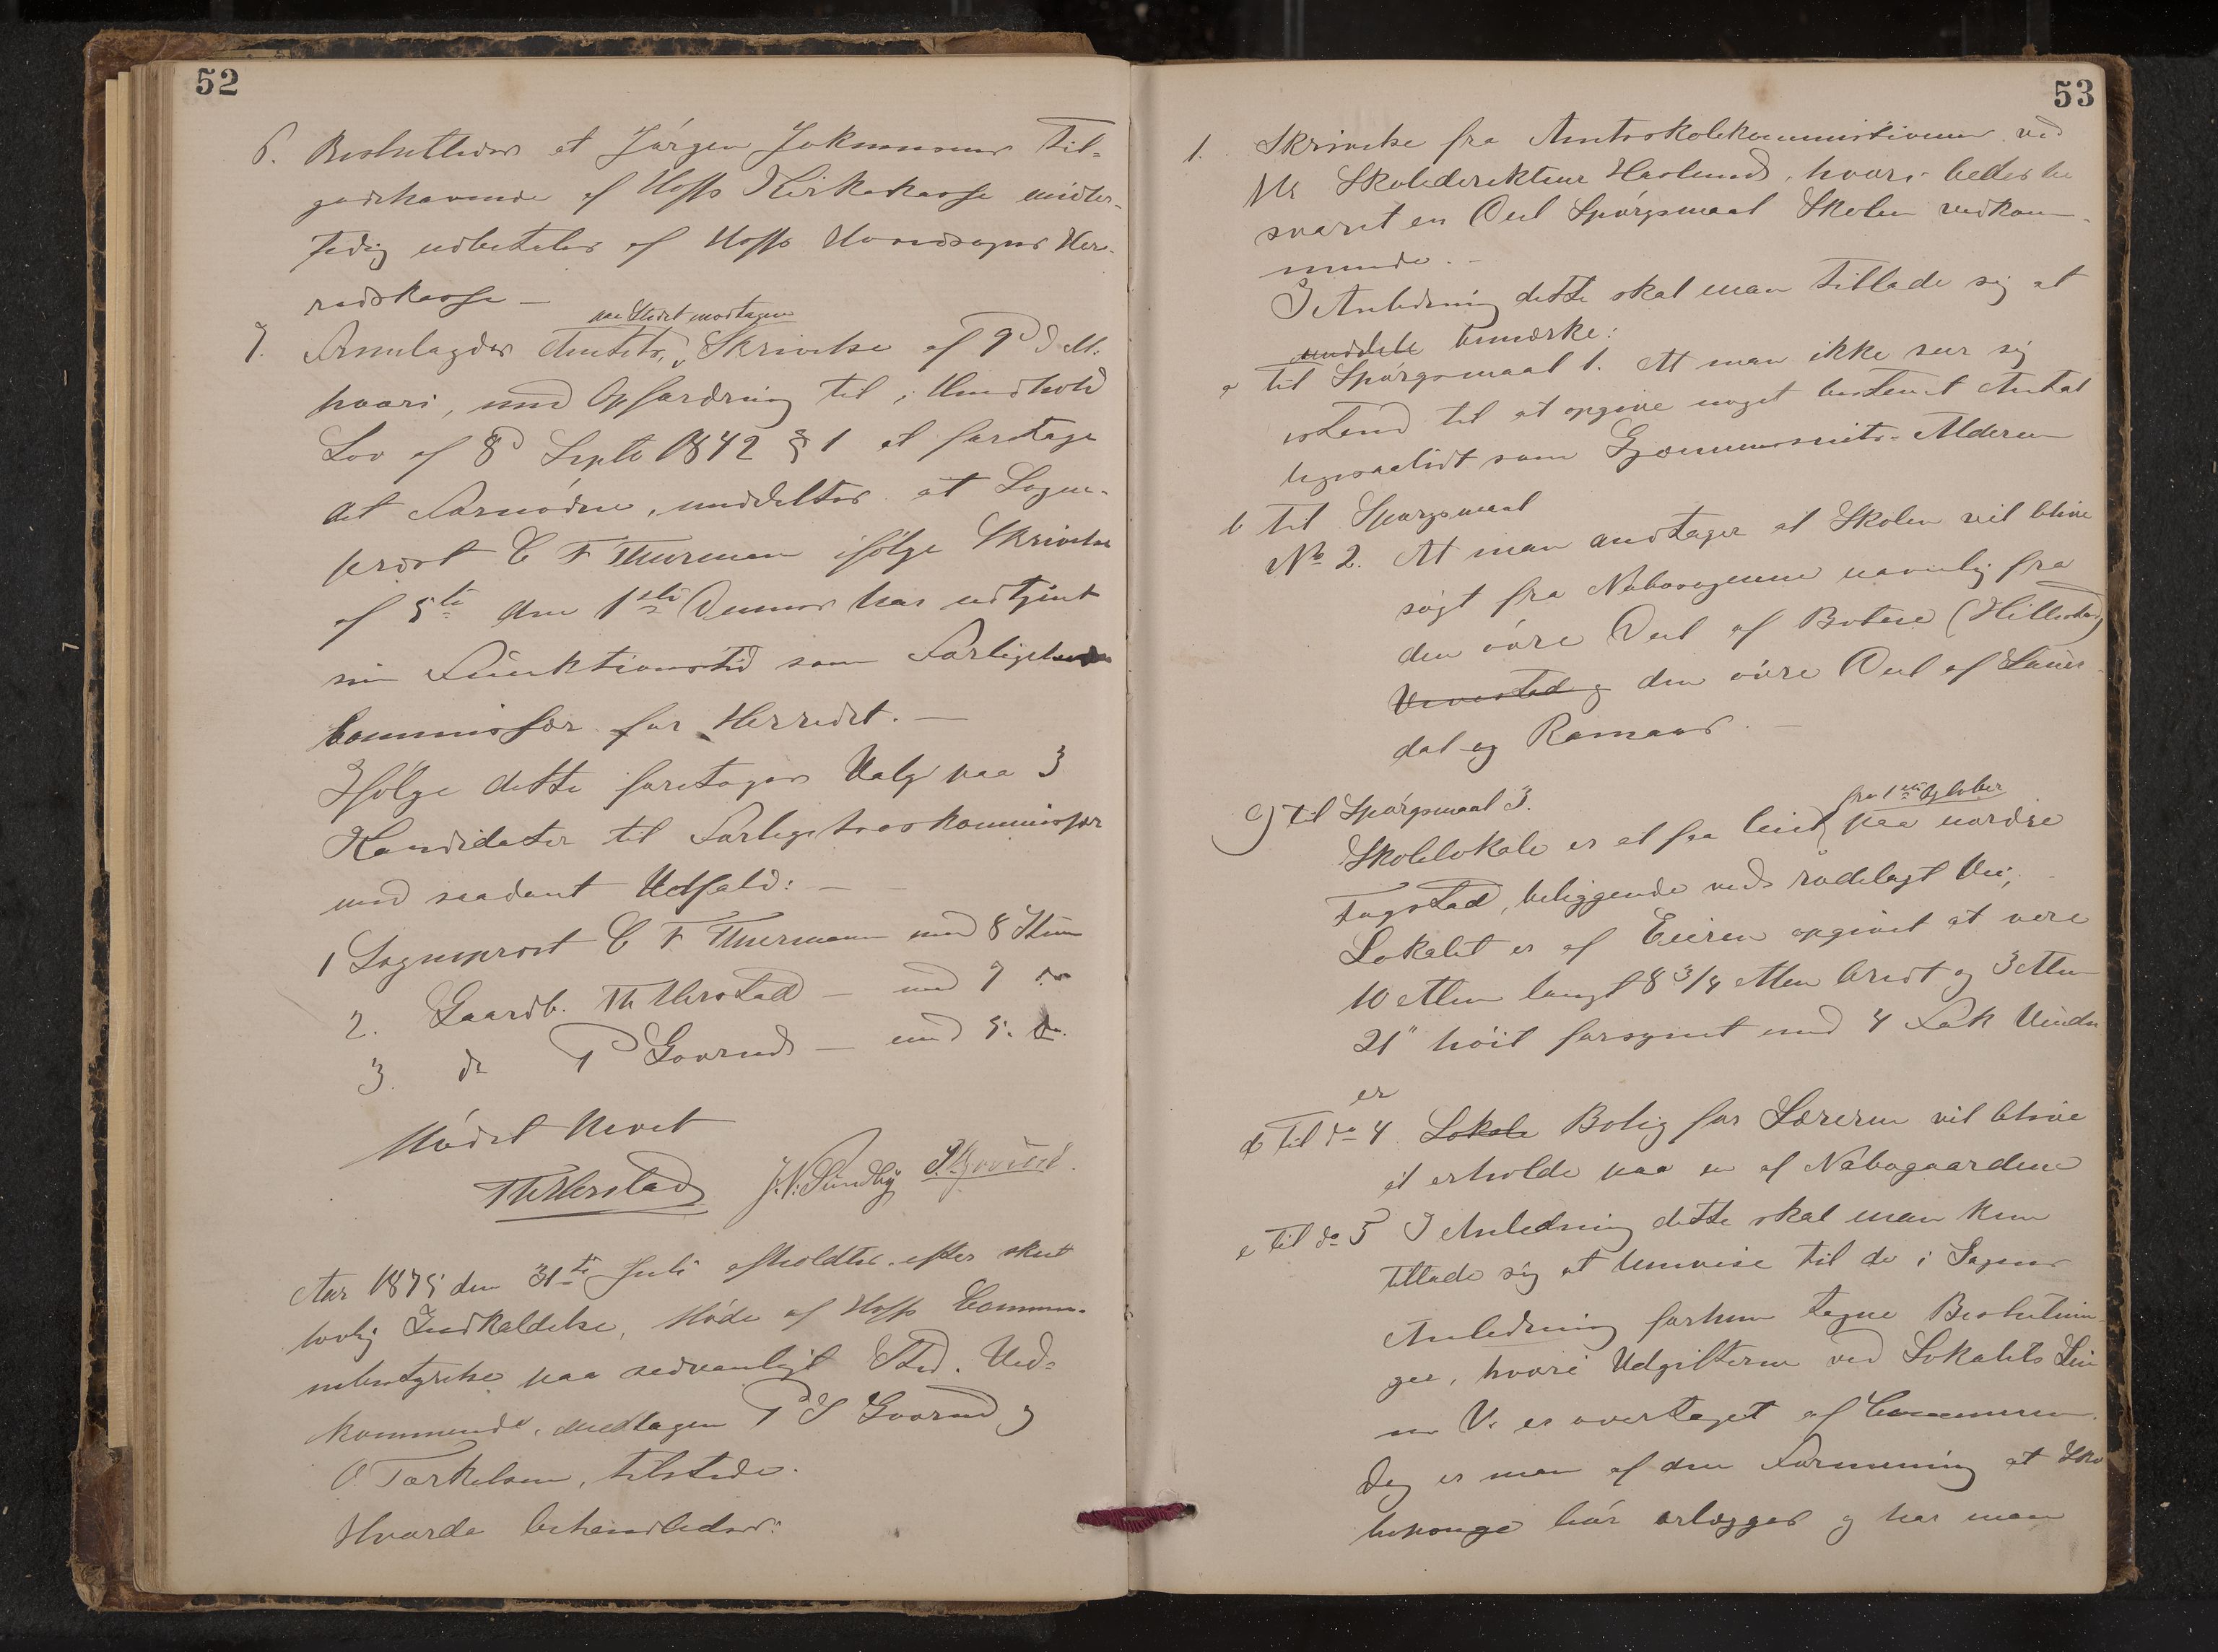 52
6. Besluttedes at Jørgen Jokumsens Til-
godehavende af Hoffs Kirkekasse midler-
tidig udbetales af Hoffs Hovedsogns Her-
redskasse —
7. Fremlagdes Amtets, paa Stedet modtagen Skrivelse af 9d d. M.
hvori, med Opfordring til i Henhold
Lov af 8d Septb 1842 § 1 at foretage
det Fornødne, meddeltes at Sogne-
prest C F Thurman ifølge Skrivelse
af 5te den 1ste Dennes har udtjent
sin Funktionstid som Forligelses
Commissær for Herredet. —
Ifølge dette foretoges Valg paa 3
Kandidater til Forligelseskommissær
med saadant Udfald: —
1 Sogneprest C F Thurmann med 8 Stem
2. Gaardb. Th Ulverstad — med 7 do
3. do P Goorud — med 5. do.
Mødet Hævet
J. N. Sundby
Aar 1875 den 31te Juli afholdtes efter skeet
lovlig Indkaldelse, Møde af Hoffs Commu-
nebestyrelse paa sedvanligt Sted. Ved-
kommende, undtagen P S Goorud og
O Torkelsen, tilstede.
Hvorda behandledes:
53
1. Skrivelse fra Amtsskolekommissionen ved
Hr Skoledirekteur Haslund, hvori bedes be
svaret en Deel Spørgsmaal Skolen vedkom-
mende. —
I Anledning dette skal man tillade sig at
meddele bemærke:
a til Spørgsmaal 1. At man ikke seer sig
istand til at opgive noget bestemt Antal
ligesaalidt som Gjennemsnits-Alderen
b til Spørgsmaal
No 2. At man andtager at Skolen vil blive
søgt fra Nabosognene navnlig fra
den øvre Deel af Botne (Hillestad)
og den øvre Deel af Sauer
dal og Ramnes. —
c) til Spørgsmaal 3.
Skolelokale er at faa leiet, fra 1ste Oktober paa nordre
Fogstad, beliggende ved rodelagt Vei,
Lokalet er af Eieren opgivet at være
10 Alen langt 8 3/4 Alen bredt og 3 Alen
21" høit forsynet med 4 Fak Vindu
er
d til do 4 Lokale Bolig for Læreren vil blive
at erholde paa en af Nabogaardene
e til do 5 I Anledning dette skal man kun
tillade sig at henvise til de i Sagens
Anledning forhen tagne Beslutnin-
ger, hvori Udgifterne ved Lokalets Lei
e m V. er overtaget af Communen.
Dog er man af den Formening at Sko
lepenge bør erlægges og har man